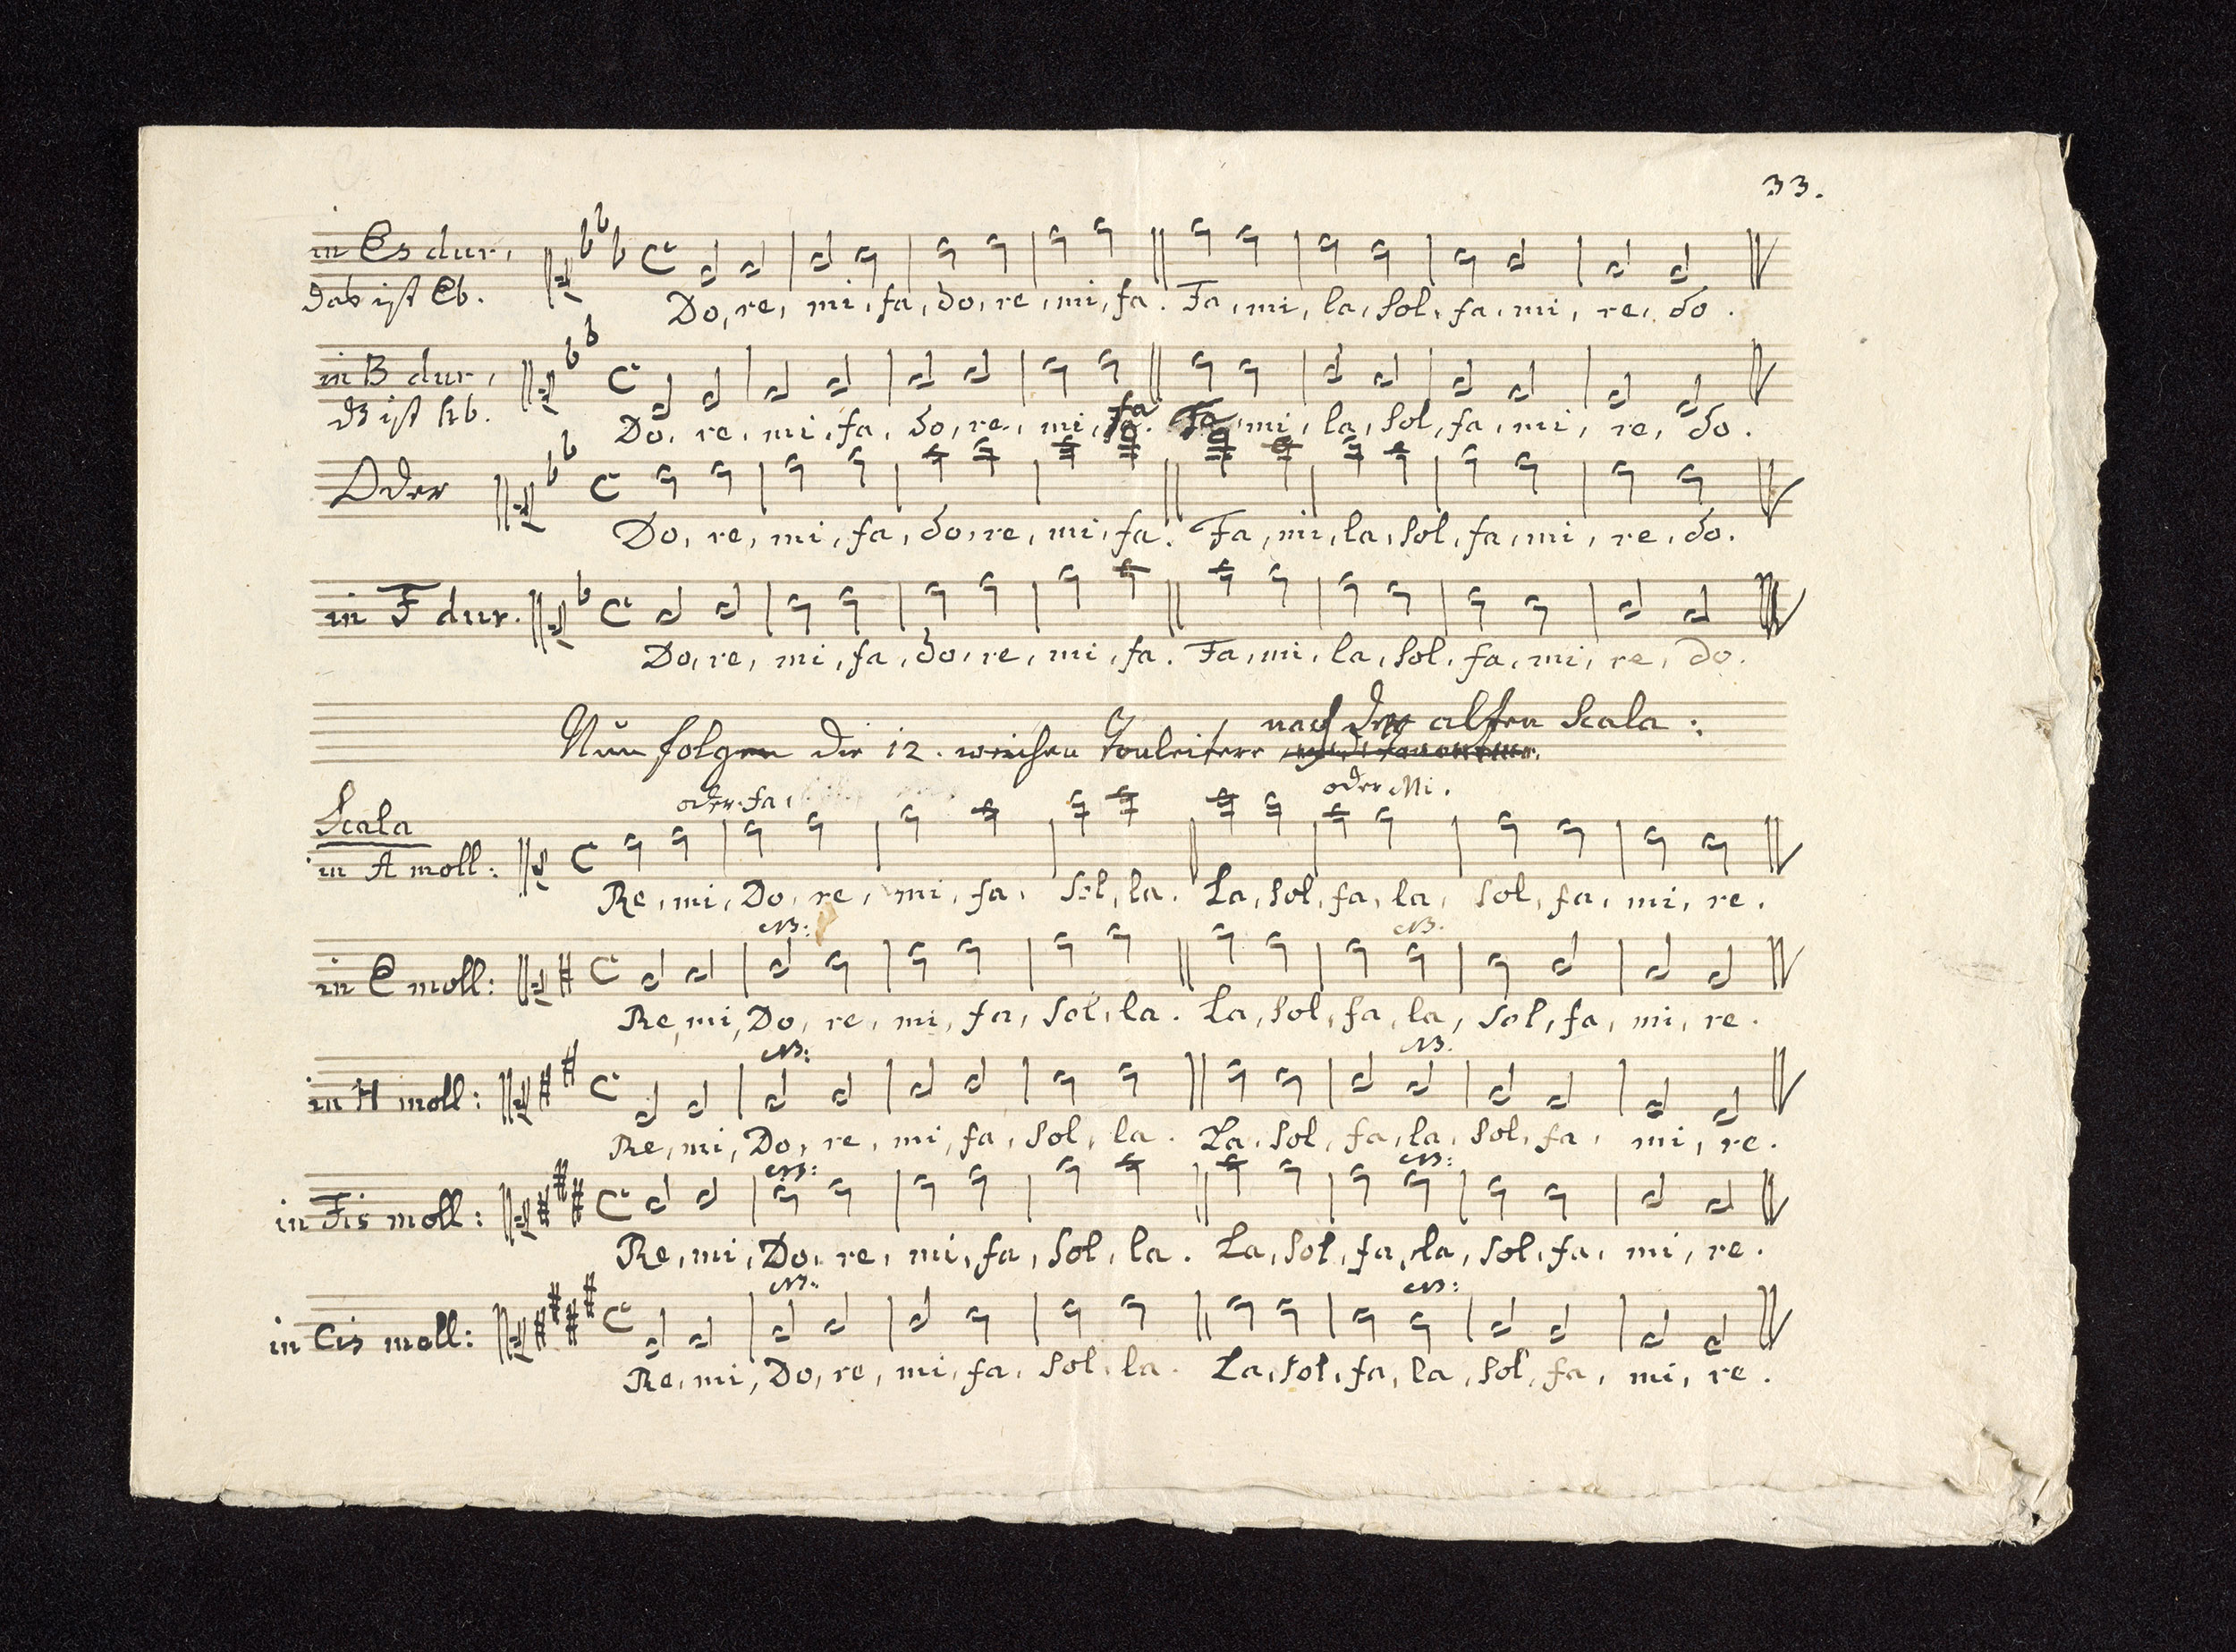 33.
in Es dur,
das ist Eb.
Do, re, mi, fa, do, re, mi, fa. Fa, mi, la, sol, fa, mi, re, do.
in B dur,
ds ist hb.
Do, re, mi, fa, do, re, mi, fa. Fa, mi, la, sol, fa, mi, re, do.
Oder
Do, re, mi, fa, do, re, mi, fa. Fa, mi, la, sol, fa, mi, re, do.
in F dur.
Do, re, mi, fa, do, re, mi, fa. Fa, mi, la, sol, fa, mi, re, do.
nach der alten Scala:
Nun folgen die 12. weichen Tonleitern
oder fa, oder Mi.
Scala
in A moll:
Re, mi, Do, re, mi, fa, sol, la. La, sol, fa, la, sol, fa, mi, re.
NB: NB.
in E moll:
Re, mi, Do, re, mi, fa, sol, la. La, sol, fa, la, sol, fa, mi, re.
NB: NB.
in H moll:
Re, mi, Do, re, mi, fa, sol, la. La, sol, fa, la, sol, fa, mi, re.
NB: NB:
in Fis moll:
Re, mi, Do, re, mi, fa, sol, la. La, sol, fa, la, sol, fa, mi, re.
NB: NB:
in Cis moll:
Re, mi, Do, re, mi, fa, sol, la. La, sol, fa, la, sol, fa, mi, re.